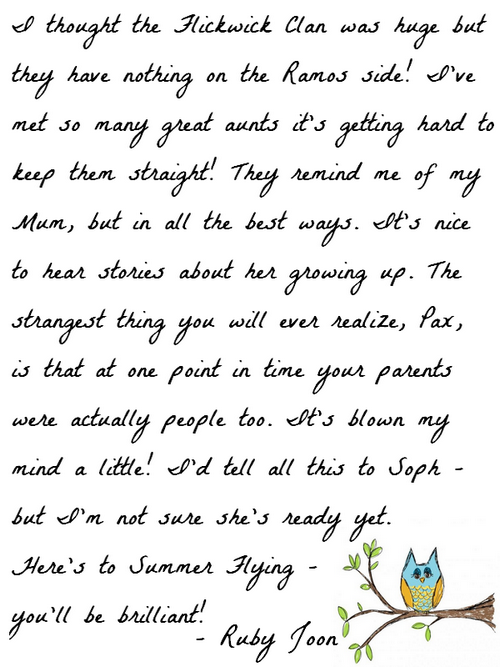 I thought the Flickwick Clan was huge but
they have nothing on the Ramos side! I've
met so many great aunts it's getting hard to
keep them straight! They remind me of my
Mum, but in all the best ways. It's nice
to hear stories about her growing up. The
strangest thing you will ever realize, Pax,
is that at one point in time your parents
were actually people too. It's blown my
mind a little! I'd tell all this to Soph -
but I'm not sure she's ready yet.
Here's to Summer Flying -
you'll be brilliant!
- Ruby Joon